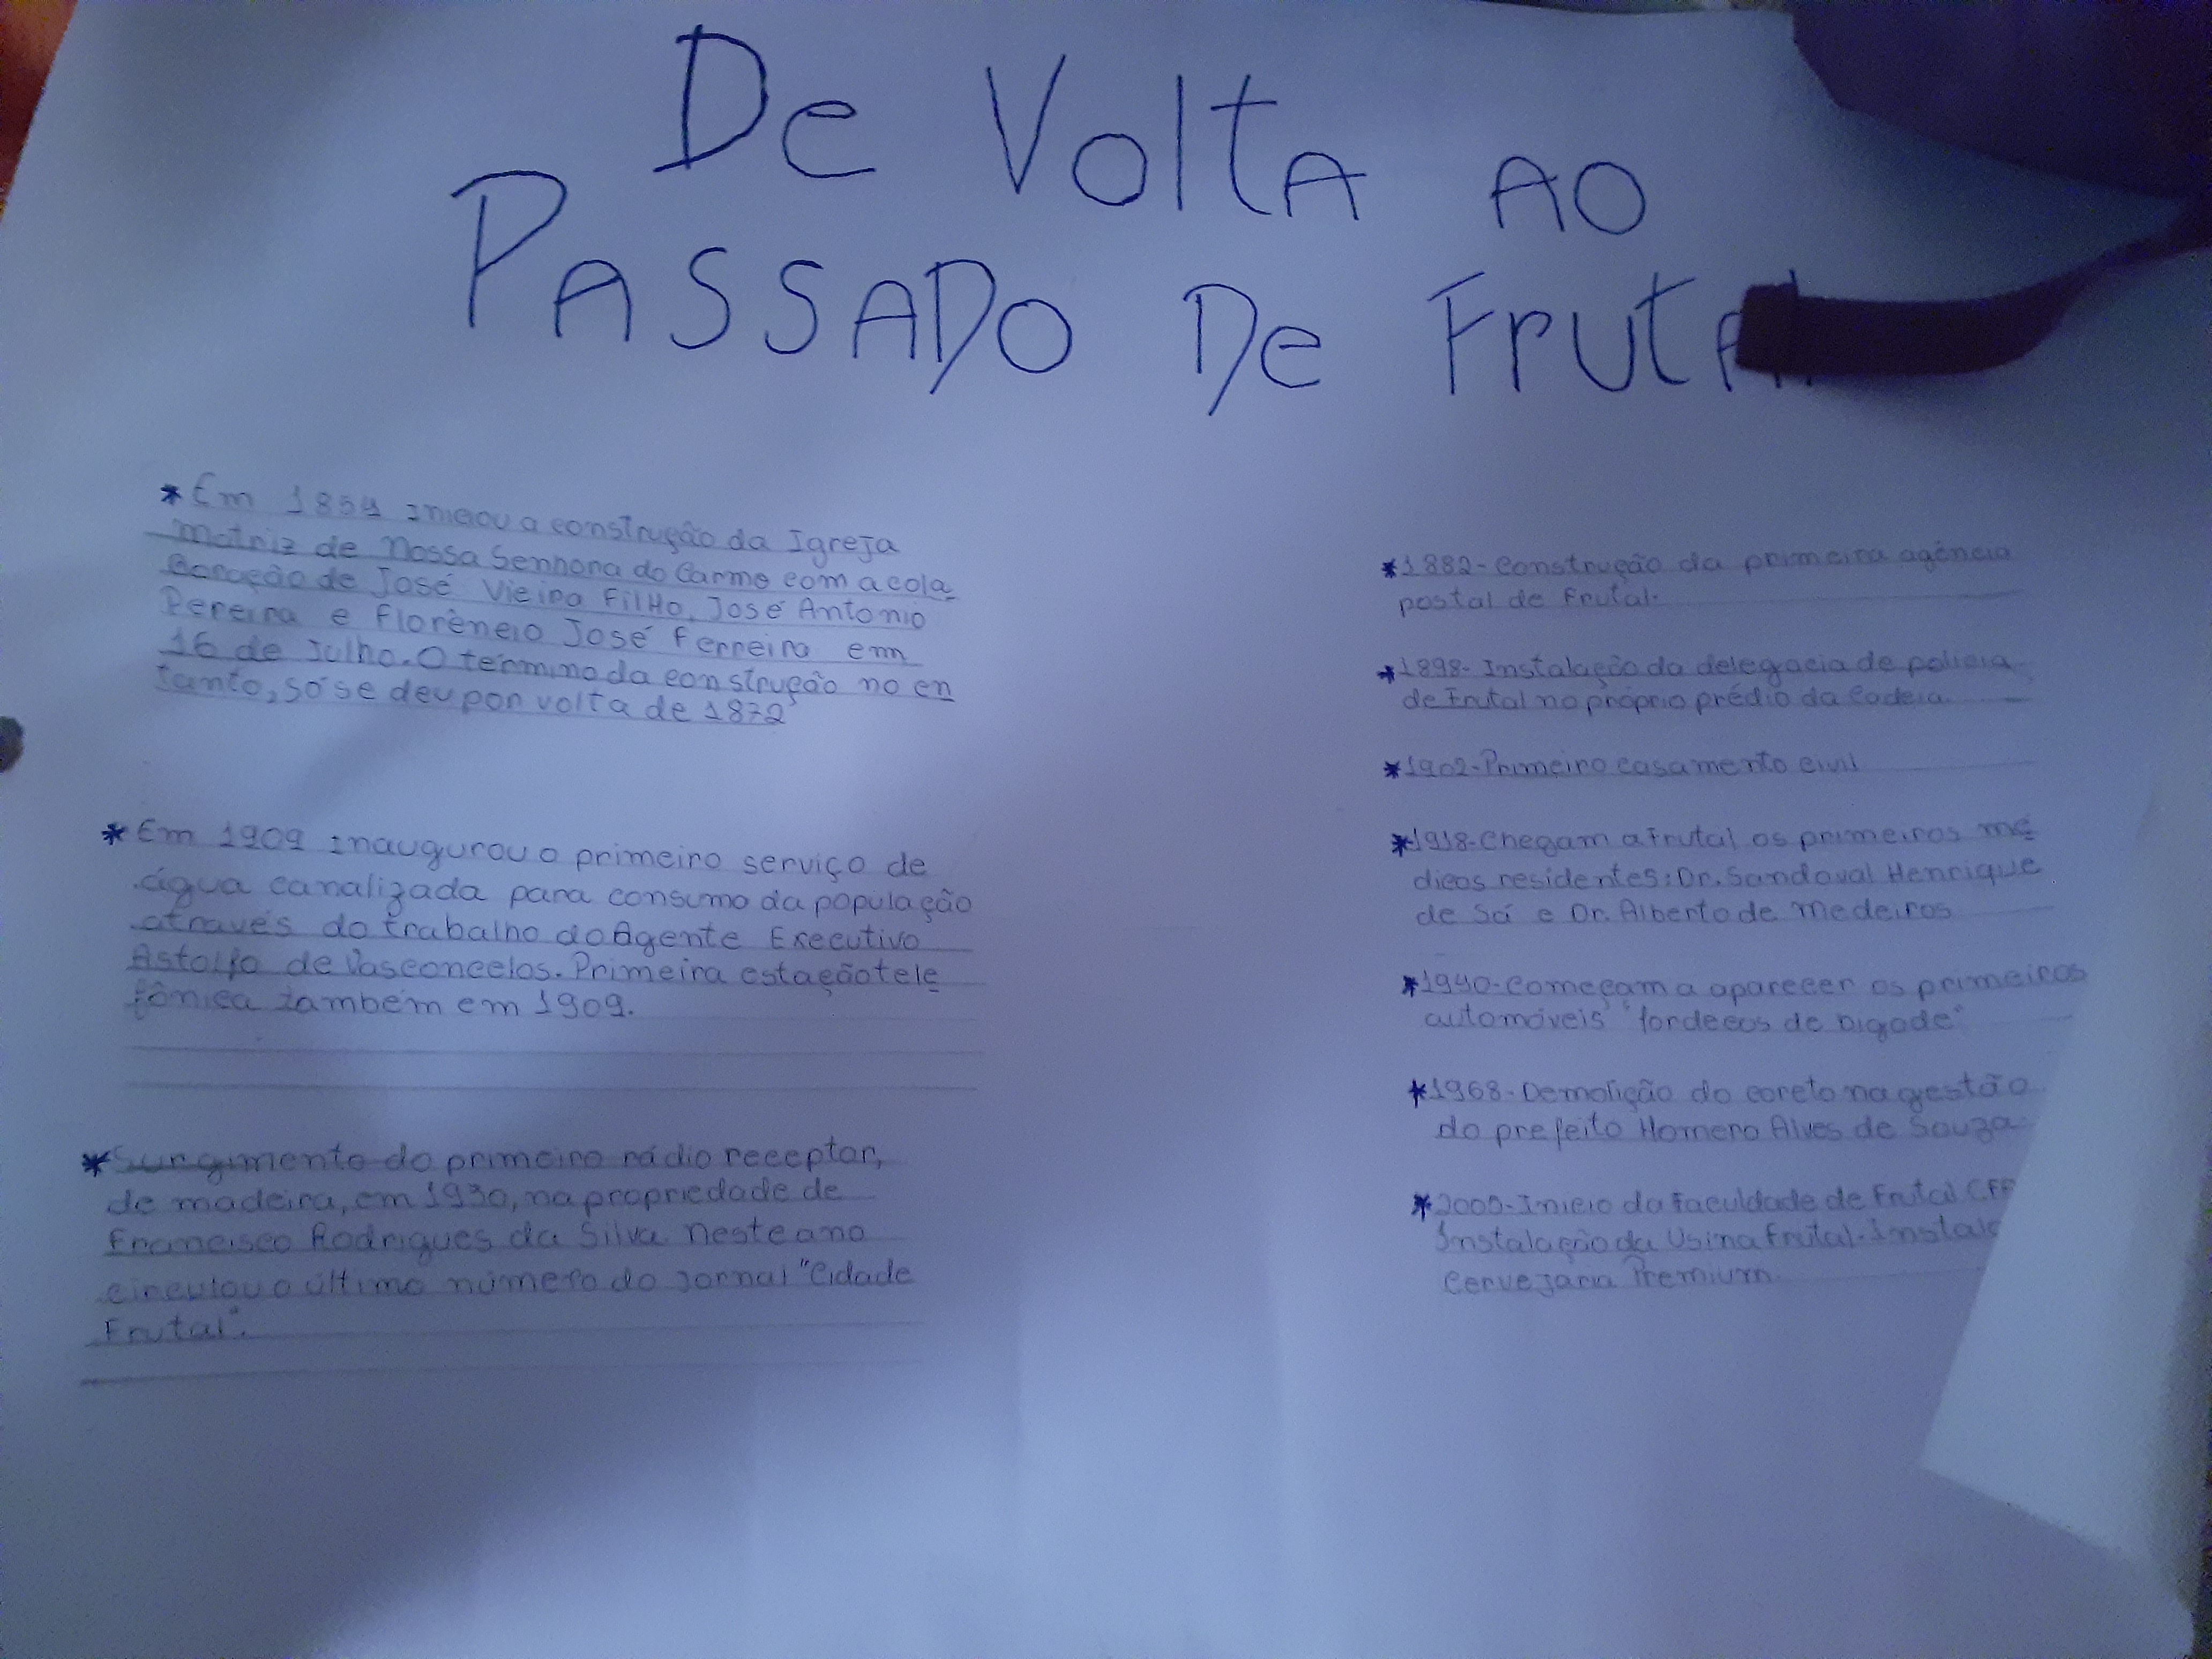 De Volta ao
Passado de Frutal
*Em 1854 iniciou a construção da Igreja
matriz de Nossa Senhora do Carmo com a cola-
boração de José Vieira Filho, José Antonio
Pereira e Florêncio José Ferreira em
16 de Julho. O término da construção no en
tanto, só se deu por volta de 1872
*Em 1909 inaugurou o primeiro serviço de
água canalizada para consumo da população
através do trabalho do Agente Executivo
Astolfo de Vasconcelos. Primeira estação tele
fônica também em 1909.
*Surgimento do primeiro rádio receptor,
de madeira, em 1930, na propriedade de
Francisco Rodrigues da Silva neste ano
circulou o último número do jornal "Cidade
Frutal".
*1882-Construção da primeira agência
postal de Frutal.
*1898-Instalação da delegacia de policia
de Frutal no próprio prédio da Cadeia.
*1902-Primeiro casamento civil
*1918-Chegam a Frutal os primeiros mé
dicos residentes: Dr. Sandoval Henrique
de Sá e Dr. Alberto de Medeiros
*1940-Começam a aparecer os primeiros
automóveis "fordecos de bigode"
*1968-Demolição do coreto na gestão
do prefeito Homero Alves de Souza
*2005-Inicio da Faculdade de Frutal
Instalação da Usina Frutal. Instala
Cervejaria Premium.